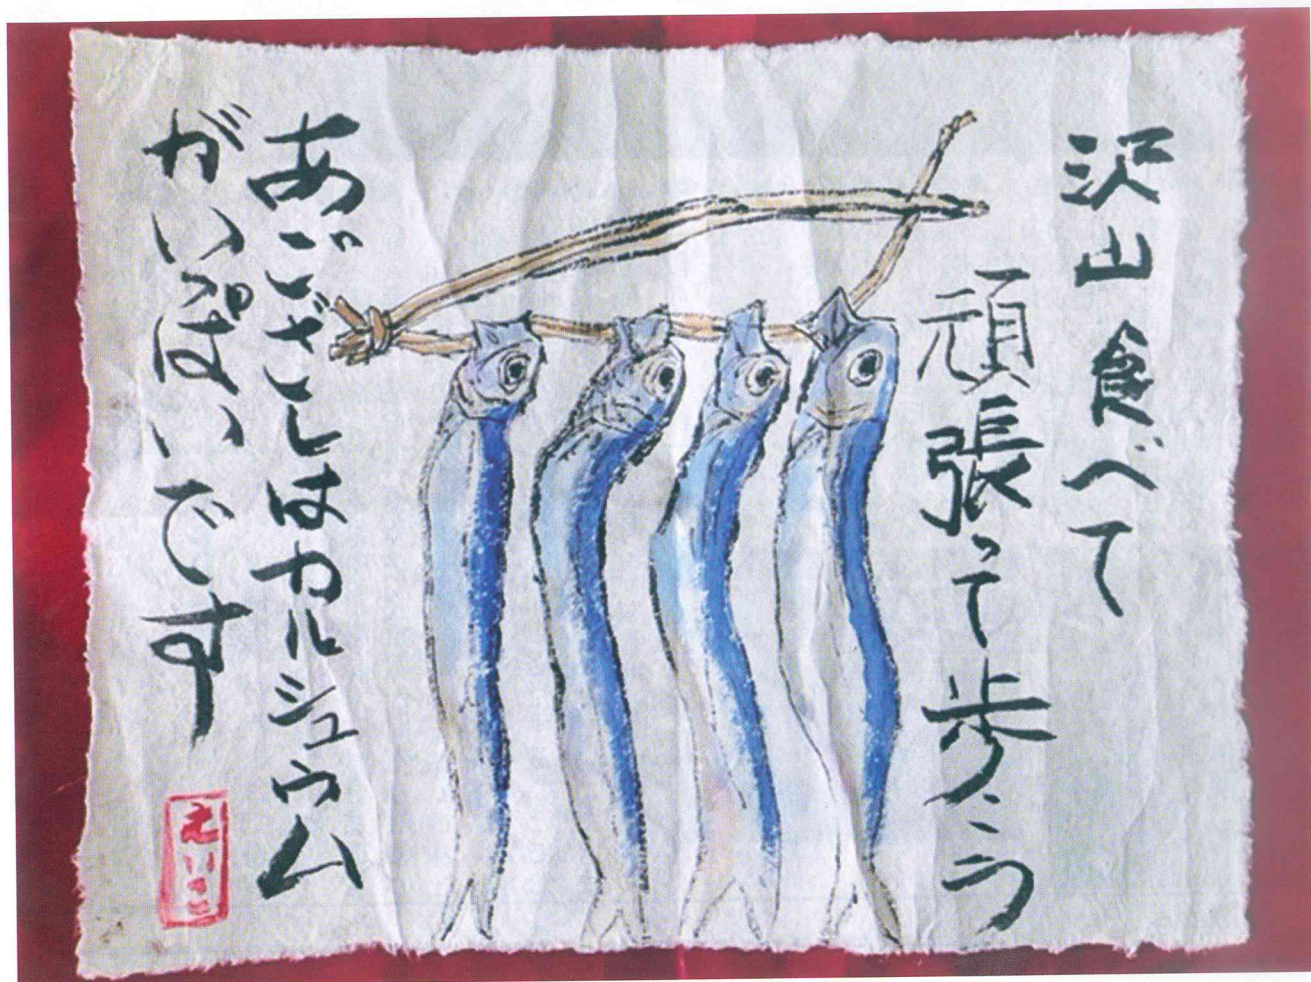 沢山食べて
頑張って歩こう
あござしはカルシュウム
がいっぱいです
えいこ